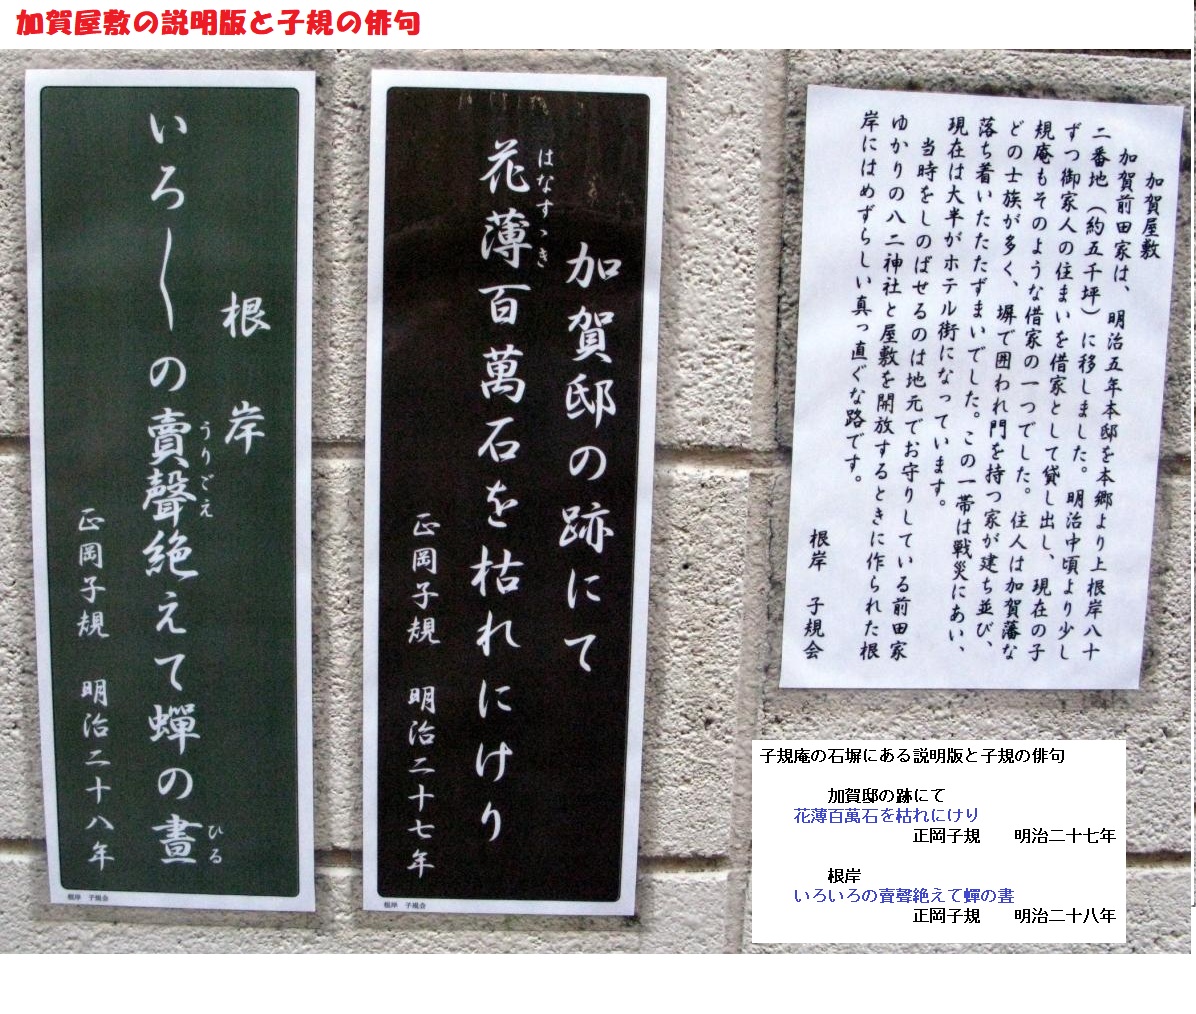 加賀屋敷の説明版と子規の俳句
加賀屋敷
加賀前田家は、明治五年本邸を本郷より上根岸八十
二番地（約五千坪）に移しました。明治中頃より少し
ずつ御家人の住まいを借家として貸し出し、現在の子
規庵もそのような借家の一つでした。住人は加賀藩な
どの士族が多く、塀で囲われ門を持つ家が建ち並び、
落ち着いたたたずまいでした。この一帯は戦災にあい、
現在は大半がホテル街になっています。
当時をしのばせるのは地元でお守りしている前田家
ゆかりの八二神社と屋敷を開放するときに作られた根
岸にはめずらしい真っ直ぐな路です。
根岸　子規会
加賀邸の跡にて
はなすゝき
花薄百萬石を枯れにけり
正岡子規　明治二十七年
根岸　子規会
根岸
うりごえ　ひる
いろ〳〵の賣聲絶えて蟬の晝
正岡子規　明治二十八年
根岸　子規会
子規庵の石塀にある説明版と子規の俳句
加賀邸の跡にて
花薄百萬石を枯れにけり
正岡子規　明治二十七年
根岸
いろいろの賣聲絶えて蟬の晝
正岡子規　明治二十八年